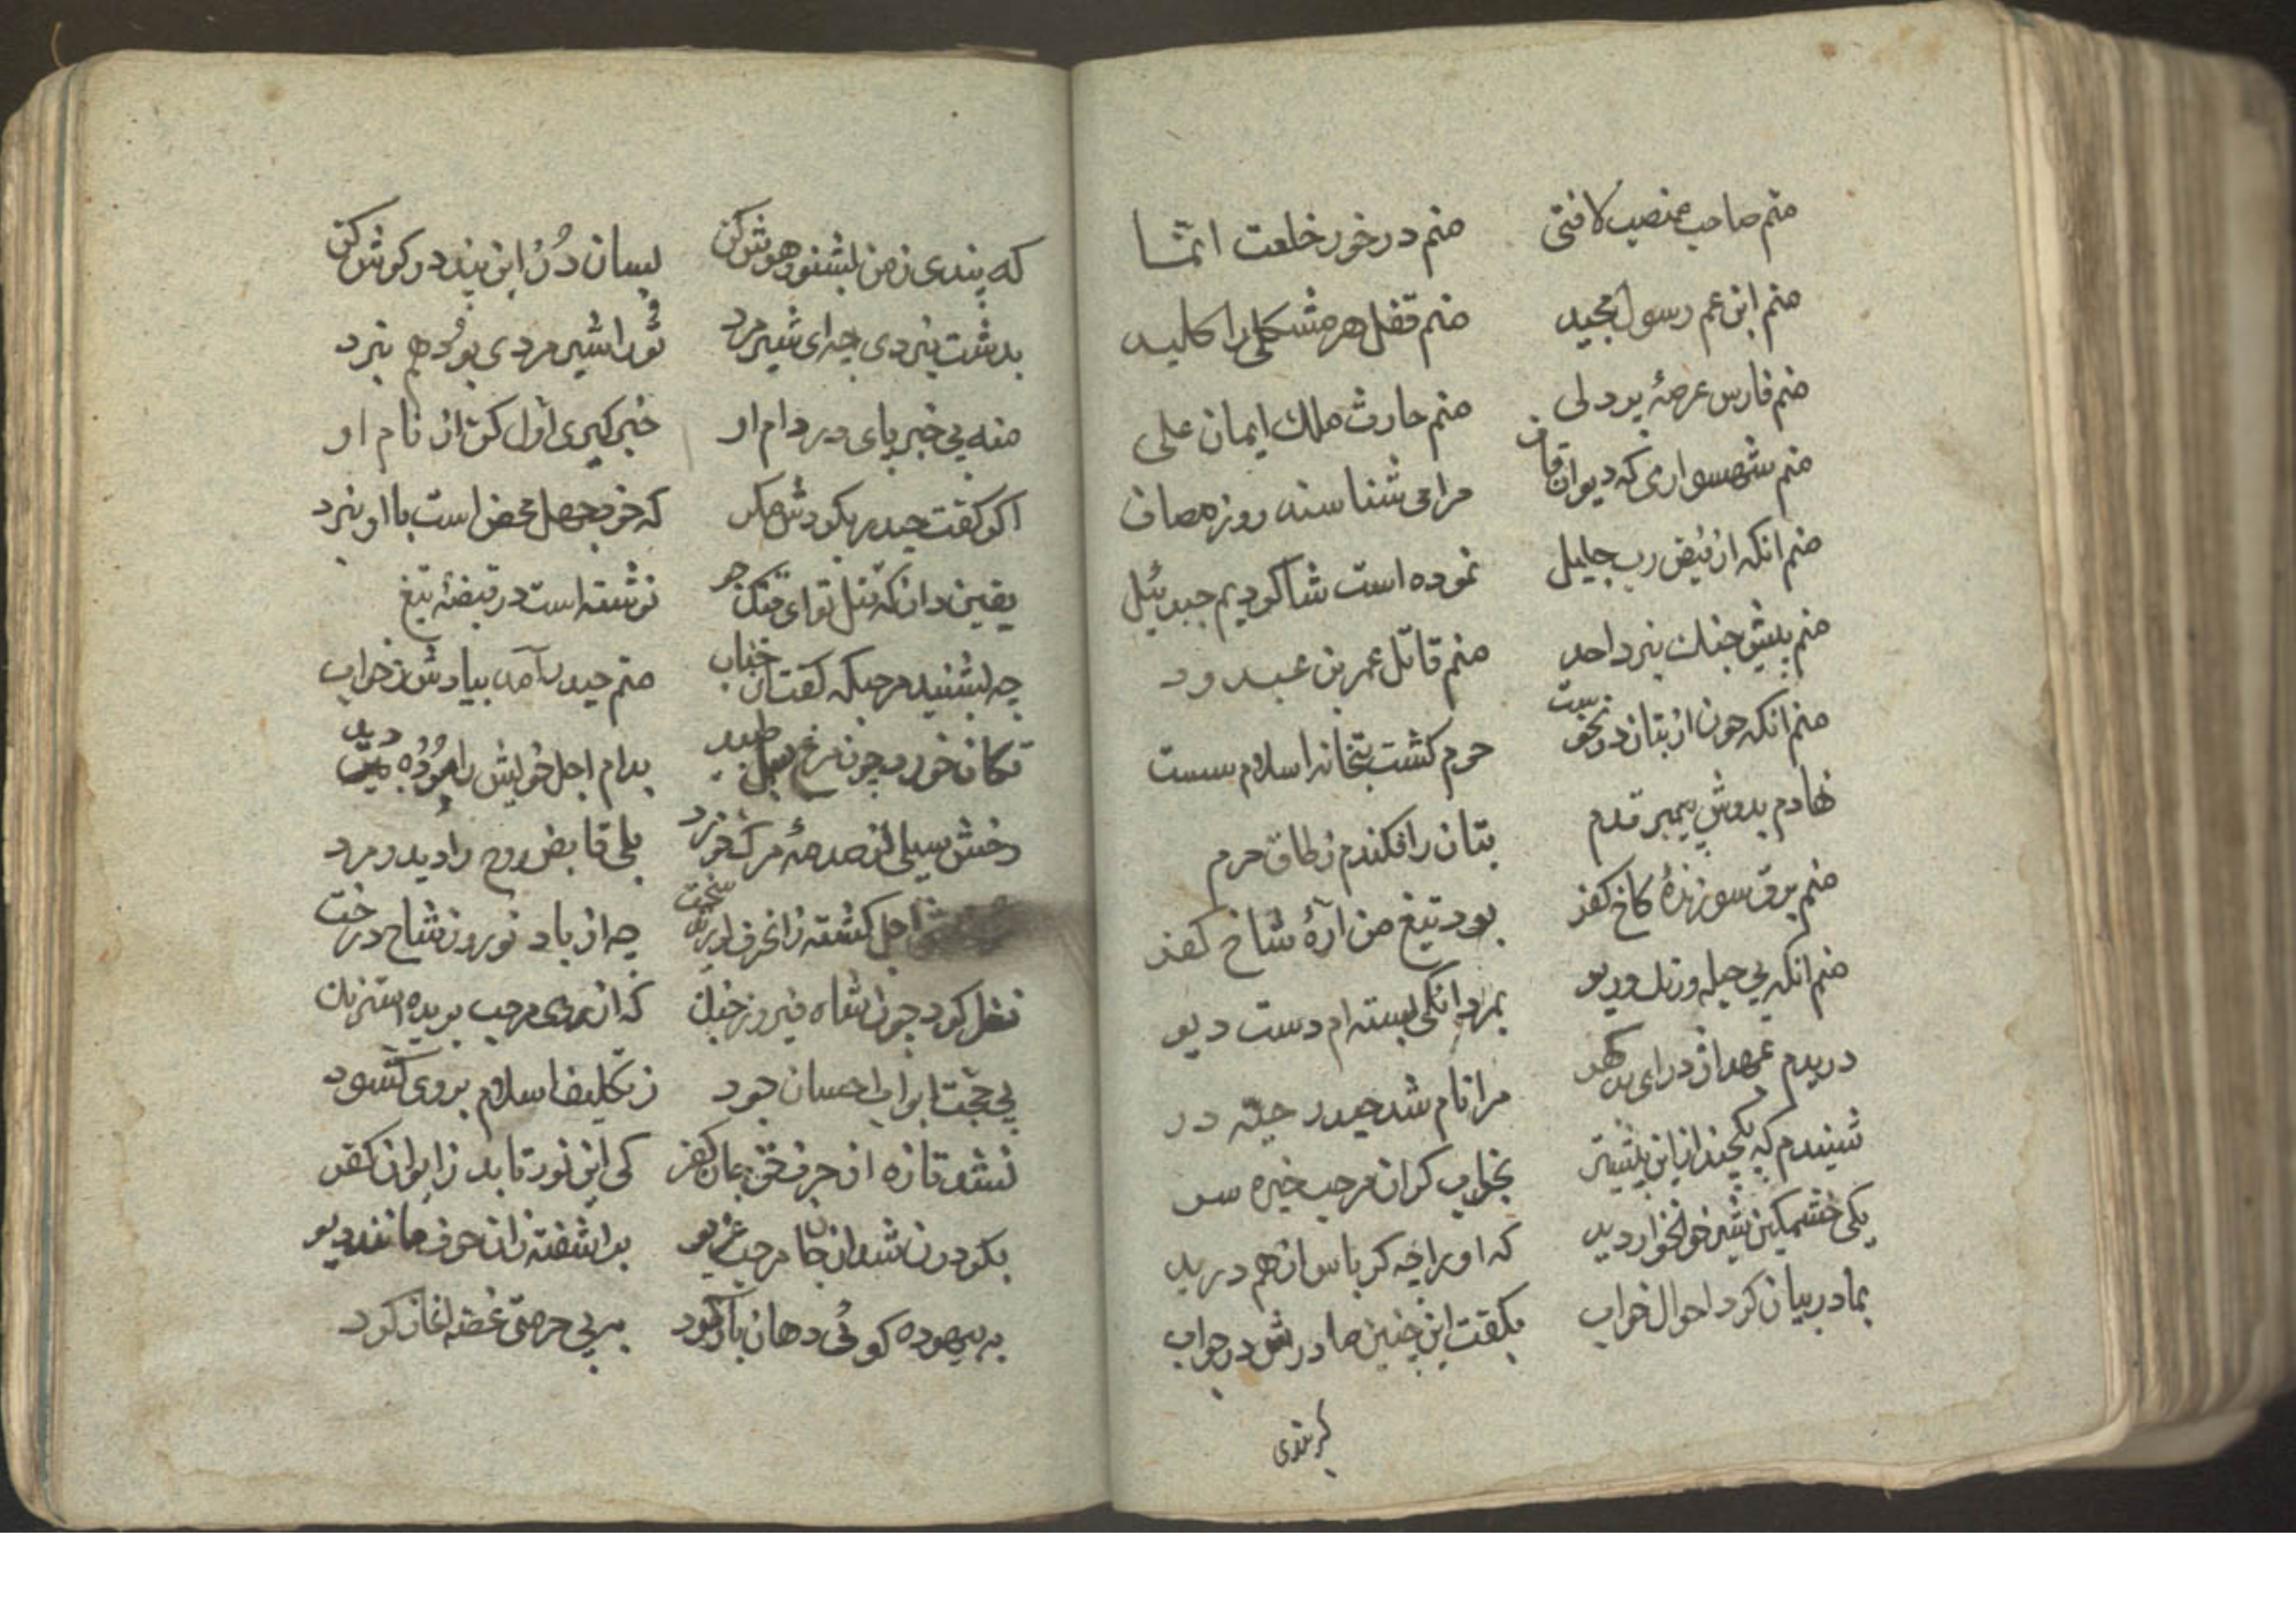 منم صاحب منصب لا فتی منم در خور خلعت انّما
منم ابن عم رسول مجید منم قفل هر مشکلی را کلید
منم فارس عرصهٔ پر دلی منم حارث ملک ایمان علی
منم شهسواری که دیوان قاف مرا می شناسند روز مصاف
منم انکه از فیض رب جلیل نموده است شاکردیم جبرئیل
منم پیش جنک نبرد احد منم قاتل عمر بن عبدود
منم انکه چون از بتان در نخست حرم کشت بتخانه اسلام سست
نهادم بدوش پیمبر قدم بتان را فکندم ز طاق حرم
منم برق سوزندهٔ کاخ کفر بود تیغ من ارّهٔ شاخ کفر
منم انکه بی حیله و زنک و ریو بمردانکی بسته ام دست دیو
دریدم بمهد اژدرای مرا نام شد حیدر حیّه در
شنیدم که یکچند از این پیشتر بخواب کران مرحب خیره سر
یکی خشمکین شیر خونخوار دید که او را چه کرباس از هم درید
بمادر بیان کرد احوال خواب بکفت این چنین مادرش در جواب
که پندی
که پندی ز من بشنو و هوش کن بسان دُر این پند در کوش کن
بدشت نبردی چه ای شیرمرد تورا شیرمردی بود هم نبرد
منه بی خبر پای در دام او خبر کیری اوّل کن از نام او
اکر کفت حیدر بکردش مکرد که خود جهل محض است با او نبرد
یقین دان که قتل تو ای نوشته است در قبضهٔ تیغ
چه بشنید مرحب که کفت ان جناب منم حیدر آمد بیادش ز خواب
تکان خورد چون مرغ بسمل طپید بدام اجل خویش را مرده دید
رخش سیلی از صدمهٔ مرک خورد بلی قابض روح را دید و مرد
اجل کشته زانحرف لرزید سخت چه از باد نوروز شاخ درخت
نظر کرد چون شاه فیروز جنک که از روی مرحب پریده است رنک
پی حجّت ابواب احسان جود ز تکلیف اسلام بروی کشود
نشد تازه از حرف حق جان کفر کی این نور تابد ز ایوان کفر
دکرکون شد ان جا مرحب غریو براشفته زان حرف مانند دیو
به بیهوده کوئی دهان باز کرد به بی حرمتی غصّه اغاز کرد